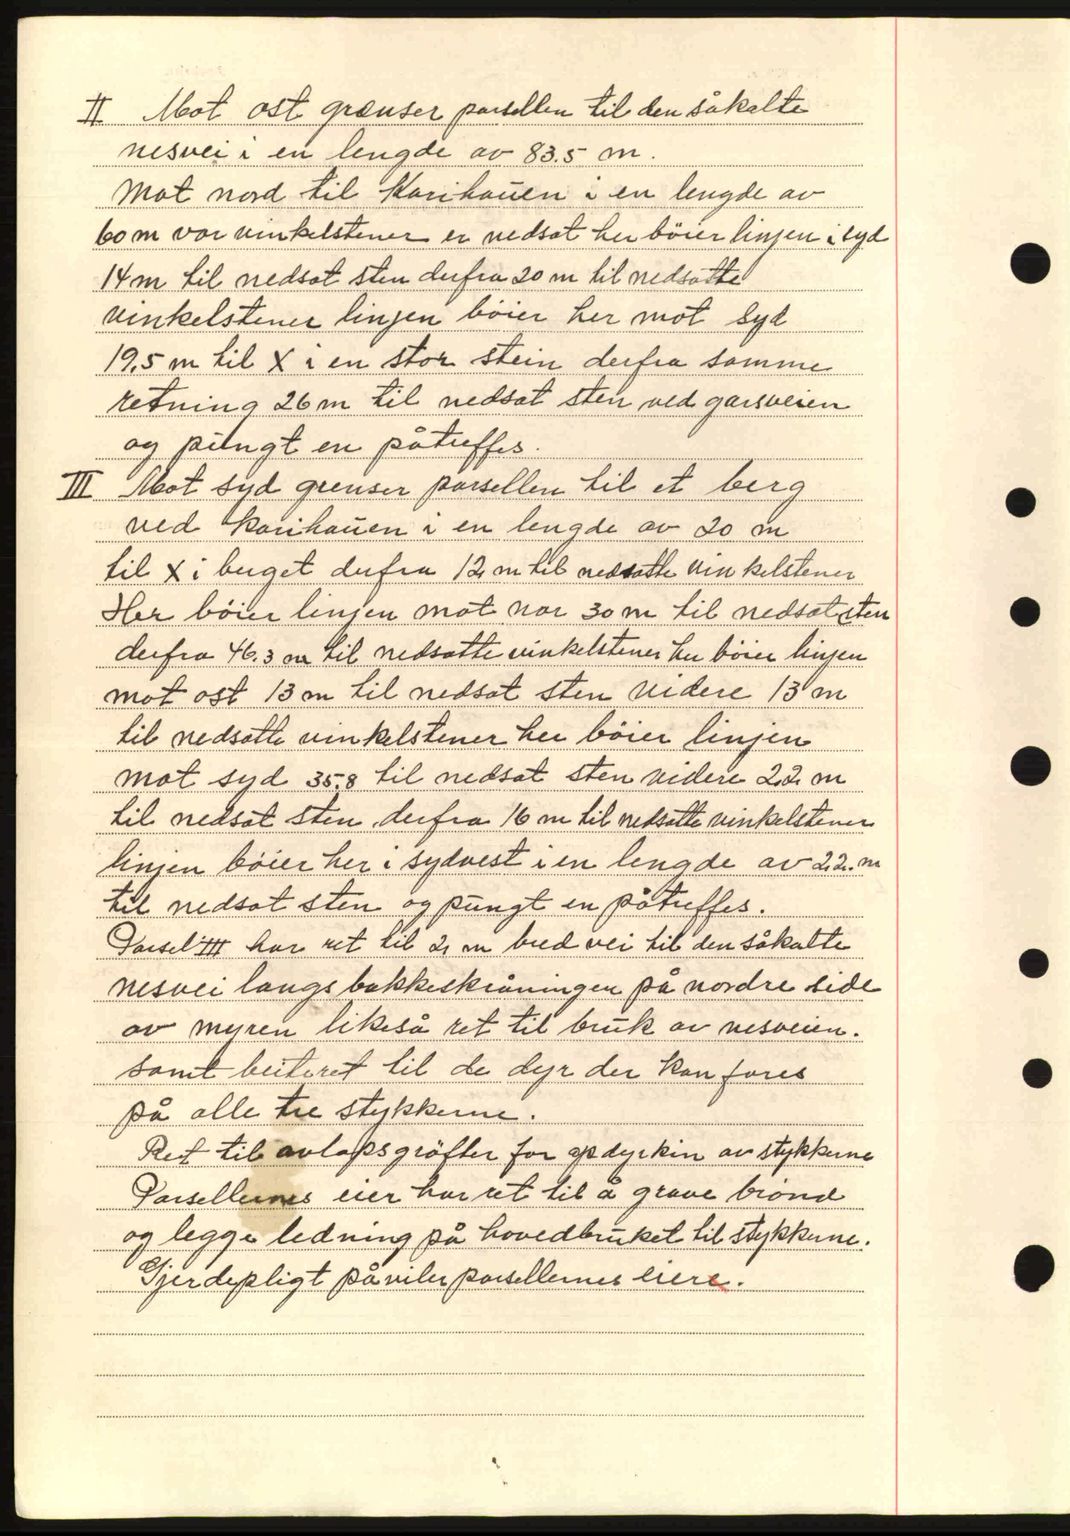 II Mot ost grænser parsellen til den såkalte
nesvei i en lengde av 83.5 m.
Mot nord til Karihauen i en lengde av
60 m vor vinkelstener er nedsat her böier linjen i syd
14 m til nedsat sten derfra 20 m til nedsatte
vinkelstener linjen böier her mot syd
19,5 m til X i en stor stein derfra samme
retning 26 m til nedsat sten ved garsveien
og pungt en påtreffes.
III Mot syd grenser parsellen til et berg
ved Karihauen i en lengde av 20 m
til X i berget derfra 12 m til nedsatte vinkelstener
Her böier linjen mot nor 30 m til nedsat sten
derfra 46.3 m til nedsatte vinkelstener her böier linjen
mot ost 13 m til nedsat sten videre 13 m
til nedsatte vinkelstener her böier linjen
mot syd 35.8 til nedsat sten videre 22 m
til nedsat sten derfra 16 m til nedsatte vinkelstener
linjen böier her i sydvest i en lengde av 22. m
til nedsat sten og pungt en påtreffes.
Parsel III har ret til 2 m bred vei til den såkalte
nesvei langs bakkeskråningen på nordre side
av myren likeså ret til bruk av nesveien.
samt beiteret til de dyr der kan fores
på alle tre stykkerne.
Ret til avlopsgröfter for opdyrkin av stykkerne
Parsellernes eier har ret til å grave brönd
og legge ledning på hovedbruket til stykkerne.
Gjerdepligt påviler parsellernes eiere.